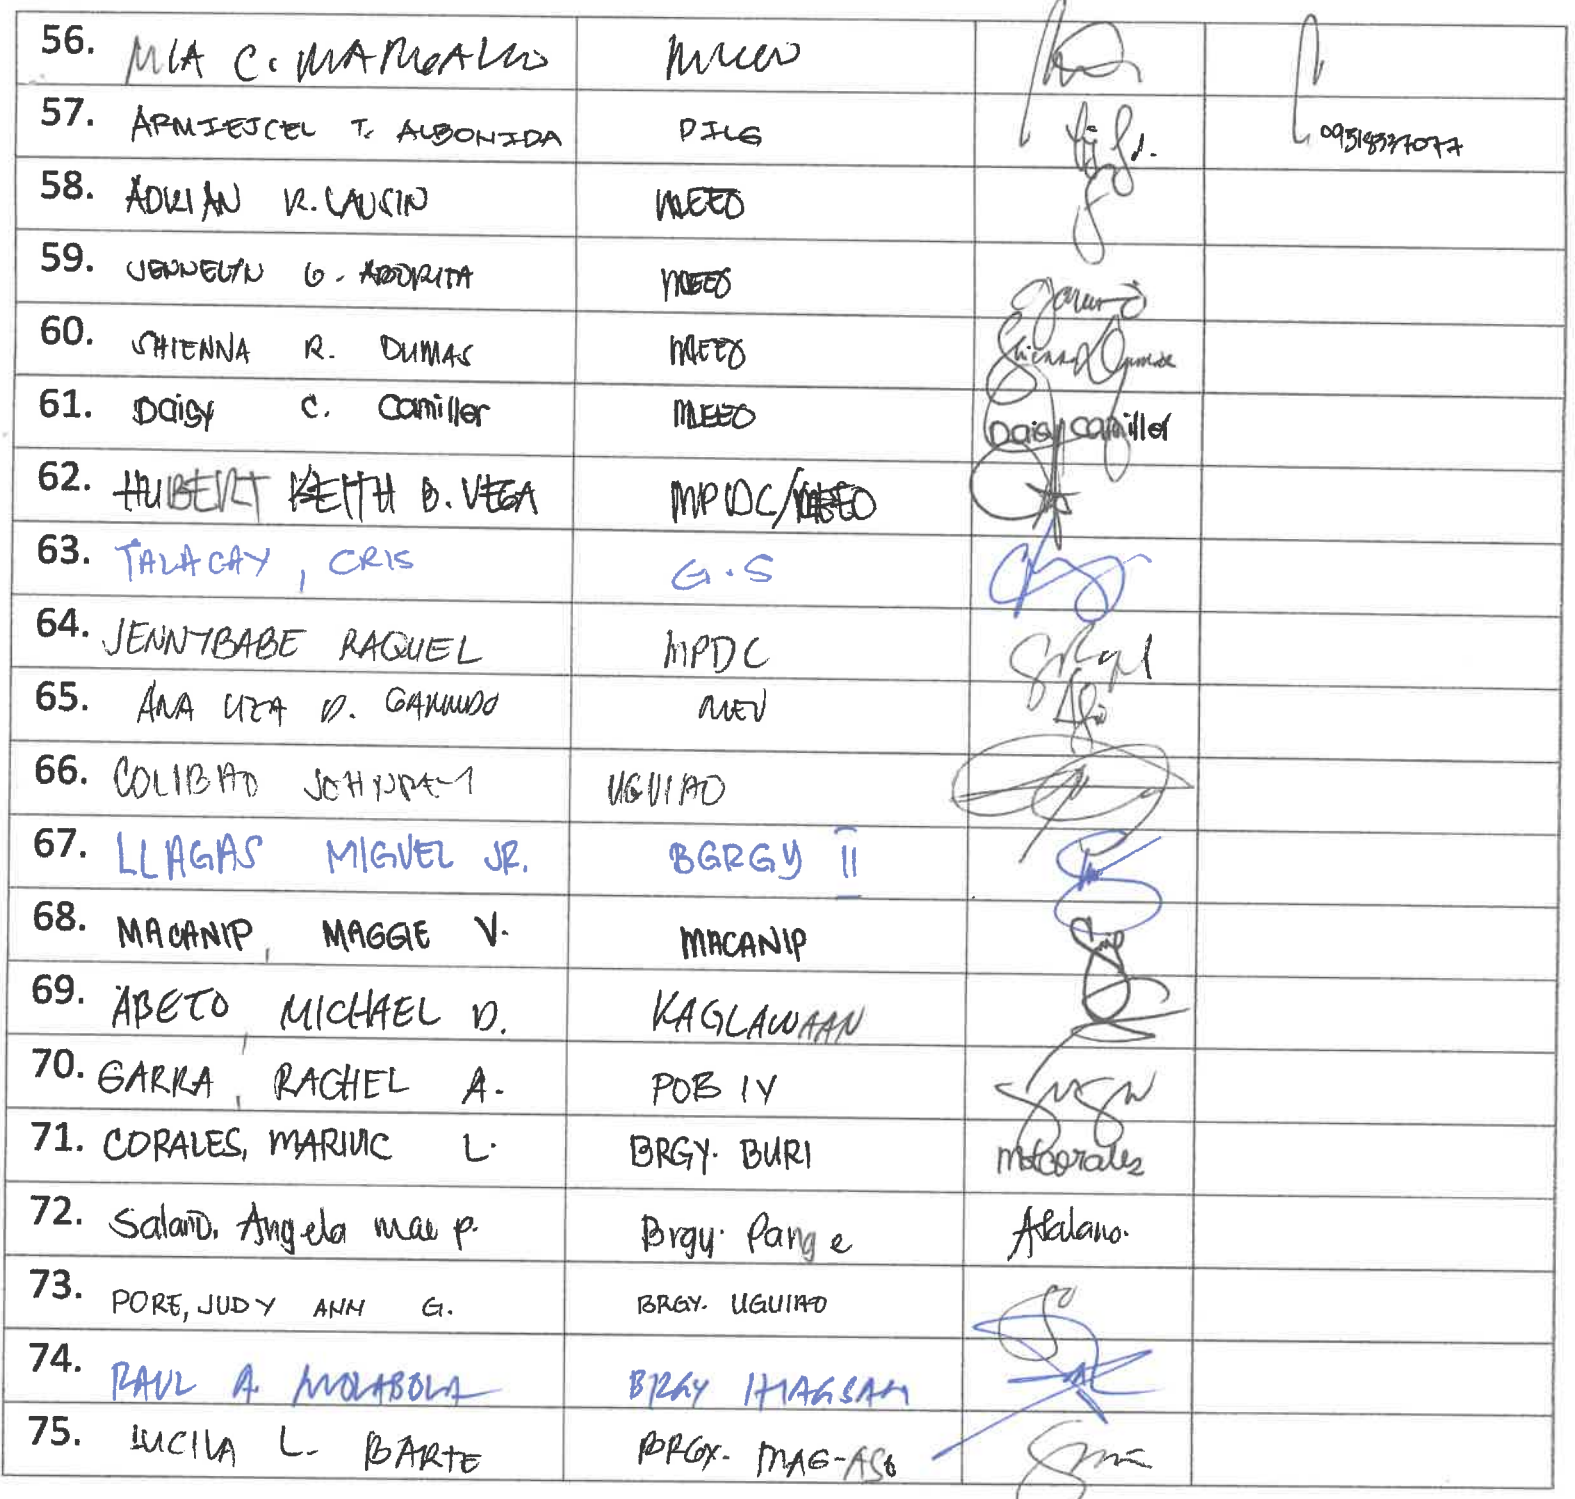 56. MIA C. MARGALLO
57. ARMIEJCEL T. ALBONIDA DILG 09518537077
58. ADRIAN R. CAUSIN MEEO
59. JENNELYN G. ADORITA MEEO
60. SHIENNA R. DUMAS MEEO Shienna Dumas
61. Daisy C. Camiller MEEO Daisy Camiller
62. HUBERT KEITH B. VEGA MPDC/MEEO
63. TALACAY, CRIS G.S
64. JENNYBABE RAQUEL MPDC
65. ANA LIZA D.
66. COLIBAO UGUIAO
67. LLAGAS MIGUEL JR. BGRGY II
68. MACANIP, MAGGIE V. MACANIP
69. ABETO, MICHAEL D. KAGLAWAAN
70. GARRA, RACHEL A. POB IV
71. CORALES, MARIVIC L. BRGY. BURI mlcorales
72. Salano, Angela mae p. Brgy. Pang e ASalano.
73. PORE, JUDY ANN G. BRGY. UGUIAO
74. RAUL A. MOLABOLA BRGY
75. LUCILA L. BARTE BRGY. MAG-ASO